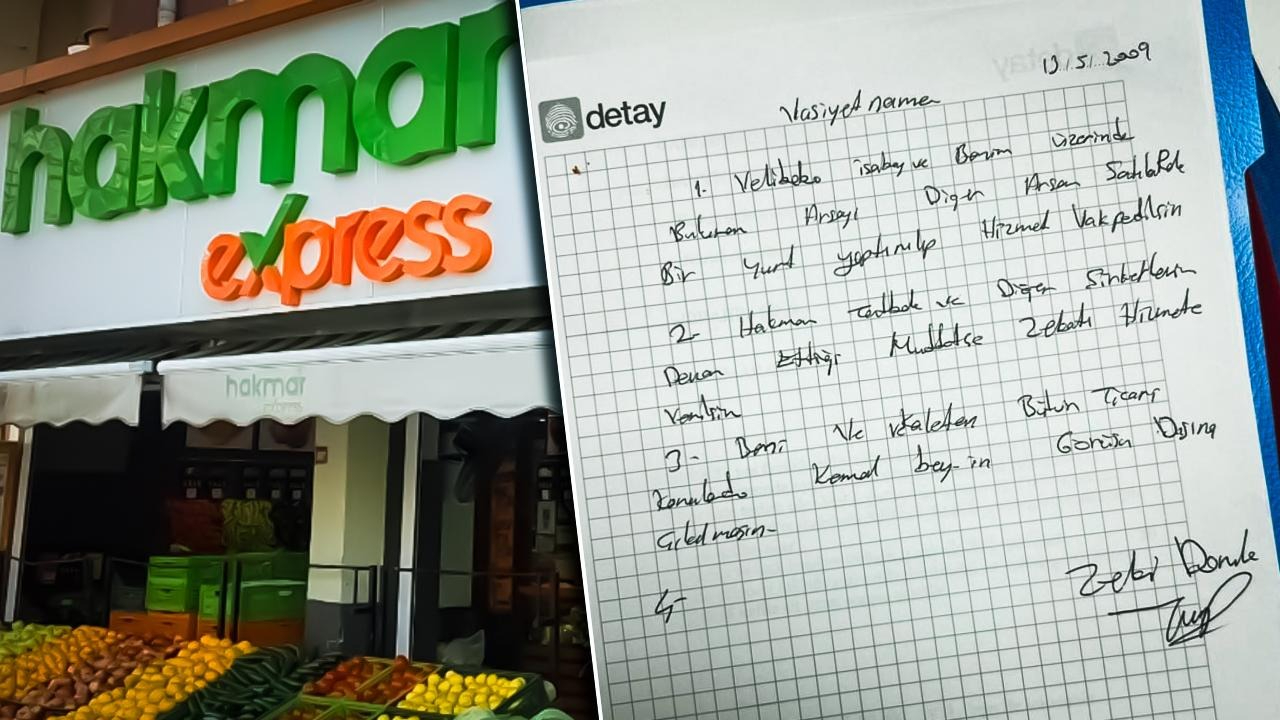 hakmar
express
hakmar
express
detay
13.5.2009
Vasiyetname
1- Velibaba isabey ve Benim üzerinde
Bulunan Arsayı Diğer Arsam Satılarak
Bir Yurt yaptırılıp Hizmet Vakfedilsin
2- Hakmar ve Diğer Şirketlerin
Devam Ettiği Müddetçe Zekatı Hizmete
Verilsin
3- Beni ve vekaleten Bütün Ticari
Konularda Kemal bey-in Görüşü Dışına
Çıkılmasın-
4-
Zeki